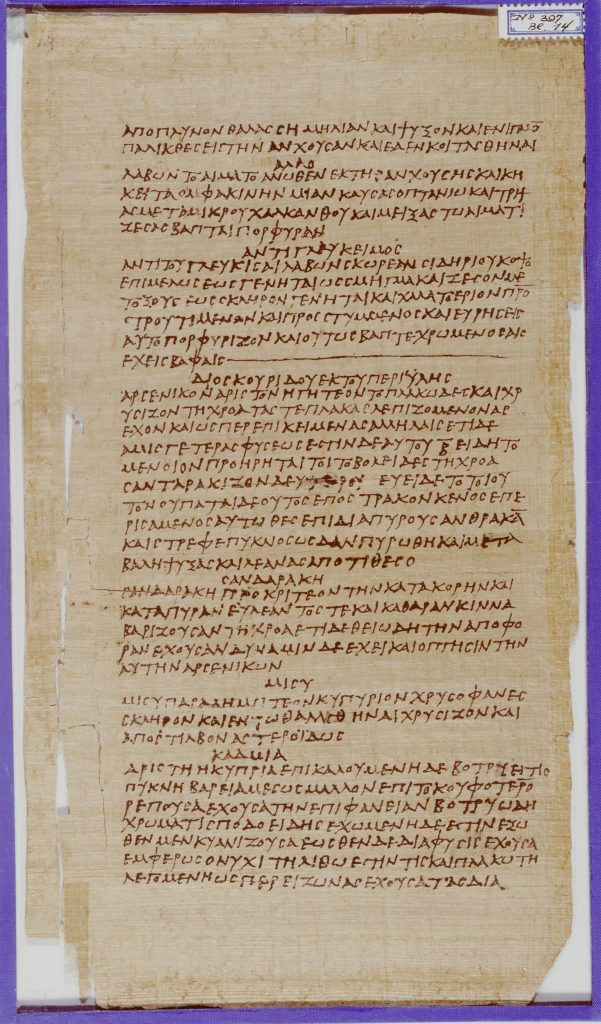 Nº 397
Bl. 14
ΑΠΟΠΛΥΝΟΝ ΘΑΛΑΣΣΗ ΜΗΛΙΑΝ ΚΑΙ ΨΥΞΟΝ ΚΑΙ ΕΝΙ
ΠΑΛΙΚΘΕΣΕΙΣ ΤΗΝ ΑΝΧΟΥΣΑΝ ΚΑΙ ΕΛΕΝΚΟΙΤΑΣΘΗΝΑΙ
ΑΛΛΟ
ΛΑΒΩΝ ΤΟ ΑΙΜΑ ΤΟ ΑΝΩΘΕΝ ΕΚ ΤΗΣ ΑΝΧΟΥΣΗΣ ΚΑΙ ΚΗ
ΦΑΚΙΝΗΝ ΜΙΑΝ ΚΑΥΣΑΣ ΟΠΤΑΝΙΩ ΚΑΙ ΤΡΙ
ΑΣ ΜΕΤΑ ΜΙΚΡΟΥ ΧΑΛΚΑΝΘΟΥ ΚΑΙ ΜΕΙΞΑΣ ΤΩ ΑΙΜΑΤΙ
ΖΕΣΑΣ ΒΑΠΤΑΙ ΠΟΡΦΥΡΑΝ
ΑΝΤΙ ΓΛΕΥΚΕΙΜΟΣ
ΑΝΤΙ ΤΟΥ ΓΛΕΥΚΙΣΑΙ ΛΑΒΩΝ ΣΚΩΡΕΑΝ ΣΙΔΗΡΙΟΥ ΚΟΨΟ
ΕΠΙΜΕΛΩΣ ΕΩΣ ΓΕΝΗΤΑΙ ΩΣ ΣΜΗΓΜΑ ΚΑΙ ΖΕΣΟΝ ΜΕ
ΤΟΞΟΥΣ ΕΩΣ ΣΚΛΗΡΟΝ ΓΕΝΗΤΑΙ ΚΑΙ ΧΑΛΑ ΤΟ ΕΡΙΟΝ ΠΡΟ
ΣΤΡΟΥΤΙΜΕΝΟΝ ΚΑΙ ΠΡΟΣΤΥΜΜΕΝΟΣ ΚΑΙ ΕΥΡΗΣΕΙΣ
ΑΥΤΟ ΠΟΡΦΥΡΙΖΟΝ ΚΑΙ ΟΥΤΩΣ ΒΑΠΤΕ ΧΡΩΜΕΝΟΣ ΑΙΣ
ΕΧΕΙΣ ΒΑΦΑΙΣ
ΔΙΟΣΚΟΥΡΙΔΟΥ ΕΚ ΤΟΥ ΠΕΡΙ ΥΛΗΣ
ΑΡΣΕΝΙΚΟΝ ΑΡΙΣΤΟΝ ΗΓΗΤΕΟΝ ΤΟ ΠΛΑΚΩΔΕΣ ΚΑΙ ΧΡ
ΥΣΙΖΟΝ ΤΗ ΧΡΟΑ ΤΑΣ ΤΕ ΠΛΑΚΑΣ ΛΕΠΙΖΟΜΕΝΟΝ ΑΣ
ΕΧΟΝ ΚΑΙ ΩΣΠΕΡ ΕΠΙΚΕΙΜΕΝΑΣ ΑΛΛΗΛΑΙΣ ΕΤΙ ΔΕ
ΑΜΙΣΓΕΤΕΡΑΣ ΦΥΣΕΩΣ ΕΣΤΙΝ ΔΕ ΑΥΤΟΥ Β ΕΙΔΗ ΤΟ
ΜΕΝ ΟΙΟΝ ΠΡΟΗΡΗΤΑΙ ΤΟΙ ΤΟ ΒΟΛΕΙΔΕΣ ΤΗ ΧΡΟΑ
ΣΑΝΤΑΡΑΚΙΖΟΝ ΔΕΥΤΕΡΟΝ ΕΥΕΙΔΕ ΤΟ ΤΟΙΟΥ
ΤΟΝ ΟΥΠΑΤΑΙ ΔΕ ΟΥΤΟΣ ΕΠ ΟΣΤΡΑΚΟΝ ΚΕΝΟΣ ΕΠΕ
ΡΙΣΑΜΕΝΟΣ ΑΥΤΩ ΘΕΣ ΕΠΙ ΔΙΑΠΥΡΟΥΣ ΑΝΘΡΑΚΑ
ΚΑΙ ΣΤΡΕΦΕ ΠΥΚΝΟΣ ΩΣ Δ ΑΝ ΠΥΡΩΘΗ ΚΑΙ ΜΕΤΑ
ΒΑΛΗ ΨΥΞΑΣ ΚΑΙ ΛΕΑΝΑΣ ΑΠΟΤΙΘΕΣΟ
ΣΑΝΔΑΡΑΚΗ
ΣΑΝΔΑΡΑΚΗ ΠΡΟΚΡΙΤΕΟΝ ΤΗΝ ΚΑΤΑΚΟΡΗ ΚΑΙ
ΚΑΤΑΠΥΡΑΝ ΕΥΛΕΑΝΤΟΣ ΤΕ ΚΑΙ ΚΑΘΑΡΑΝ ΚΙΝΝΑ
ΒΑΡΙΖΟΥΣΑΝ ΤΗ ΧΡΟΑ ΕΤΙ ΔΕ ΘΕΙΩΔΗ ΤΗΝ ΑΠΟΦΟ
ΡΑΝ ΕΧΟΥΣΑΝ ΔΥΝΑΜΙΝ ΔΕ ΕΧΕΙ ΚΑΙ ΟΠΤΗΣΙΝ ΤΗΝ
ΑΥΤΗΝ ΑΡΣΕΝΙΚΩΝ
ΜΙΣΥ
ΜΙΣΥ ΠΑΡΑΛΗΜΠΤΕΟΝ ΚΥΠΥΡΙΟΝ ΧΡΥΣΟΦΑΝΕΣ
ΣΚΛΗΡΟΝ ΚΑΙ ΕΝ ΤΩ ΘΛΑΣΘΗΝΑΙ ΧΡΥΣΙΖΟΝ ΚΑΙ
ΑΠΟΣΤΙΛΒΟΝ ΑΣΤΕΡΟΙΔΩΣ
ΚΑΔΜΙΑ
ΑΡΙΣΤΗ Η ΚΥΠΡΙΑ ΕΠΙΚΑΛΟΥΜΕΝΗ ΔΕ ΒΟΤΡΥΕΙΤΙΣ
ΠΥΚΝΗ ΒΑΡΕΙΑ ΜΕΣΩΣ ΜΑΛΛΟΝ ΕΠΙ ΤΟ ΚΟΥΦΟΤΕΡΟ
ΡΕΠΟΥΣΑ ΕΧΟΥΣΑ ΤΗΝ ΕΠΙΦΑΝΕΙΑΝ ΒΟΤΡΥΩΔΗ
ΧΡΩΜΑΤΙ ΣΠΟΔΟΕΙΔΗΣ ΕΧΩΜΕΝΗ ΔΕ ΕΣΤΙΝ ΕΞΩ
ΘΕΝ ΜΕΝ ΚΥΑΝΙΖΟΥΣΑ ΕΣΩΘΕΝ ΔΕ ΔΙΑΦΥΣΙΣ ΕΧΟΥΣΑ
ΕΜΦΕΡΩΣ ΟΝΥΧΙΤΗ ΛΙΘΩ ΕΣΤΙΝ ΤΙΣ ΚΑΙ ΠΛΑΚΩΤΗ
ΛΕΓΟΜΕΝΗ ΩΣΠΕΡΕΙ ΖΩΝΑΣ ΕΧΟΥΣΑ ΤΑΣ ΔΙΑ